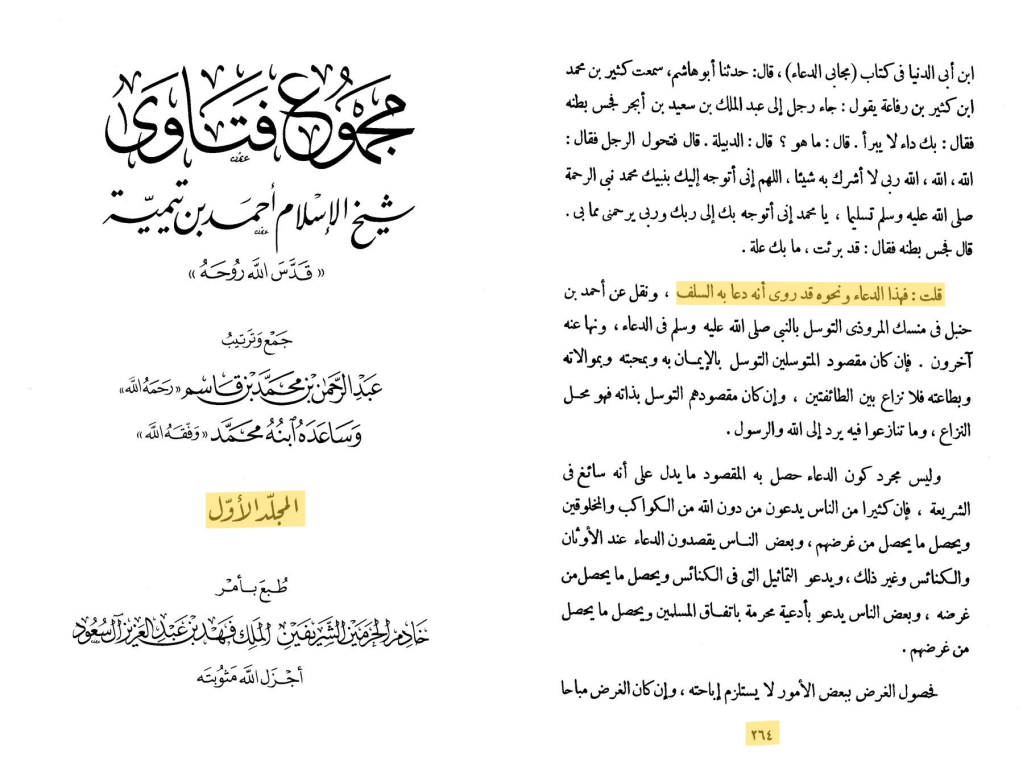 مجموع فتاوى
شيخ الإسلام أحمد بن تيمية
«قَدَّسَ اللَّه رُوحَهُ»
جَمْع وَتَرتيبُ
عَبْد الرَّحمٰن بن محمَّد بن قاسم «رَحمَهُ اللَّه»
وَسَاعَدَهُ ٱبنُهُ محمَّد «وَفّقَهُ اللَّه»
المجلّد الأوّل
طُبعَ بـأمْر
خَادِم الحَرَمَين الشَّريفَين الملك فَهْد بن عَبْد العزيز آل سُعُود
أجْزَل اللَّه مَثوبَته
ابن أبى الدنيا فى كتاب (مجابى الدعاء) ، قال: حدثنا أبو هاشم، سمعت كثير بن محمد
ابن كثير بن رفاعة يقول : جاء رجل إلى عبد الملك بن سعيد بن أبجر فجس بطنه
فقال : بك داء لا يبرأ . قال : ما هو ؟ قال : الدبيلة . قال فتحول الرجل فقال :
الله ، الله ، الله ربى لا أشرك به شيئا ، اللهم إنى أتوجه إليك بنبيك محمد نبى الرحمة
صلى الله عليه وسلم تسليما ، يا محمد إنى أتوجه بك إلى ربك وربى يرحمنى مما بى .
قال فجس بطنه فقال : قد برئت ، ما بك علة .
قلت : فهذا الدعاء ونحوه قد روى أنه دعا به السلف ، ونقل عن أحمد بن
حنبل فى منسك المروذى التوسل بالنبى صلى الله عليه وسلم فى الدعاء ، ونها عنه
آخرون . فإن كان مقصود المتوسلين التوسل بالإيمـان به وبمحبته وبموالاته
وبطاعته فلا نزاع بين الطائفتين ، وإن كان مقصودهم التوسل بذاته فهو محـل
النزاع ، وما تنازعوا فيه يرد إلى الله والرسول .
وليس مجرد كون الدعاء حصل به المقصود ما يدل على أنه سائغ فى
الشريعة ، فإن كثيرا من الناس يدعون من دون الله من الكواكب والمخلوقين
ويحصل ما يحصل من غرضهم ، وبعض النـاس يقصدون الدعاء عند الأوثان
والكنائس وغير ذلك ، ويدعو التماثيل التى فى الكنائس ويحصل ما يحصل من
غرضه ، وبعض الناس يدعو بأدعية محرمة باتفـاق المسلمين ويحصل ما يحصل
من غرضهم .
فحصول الغرض ببعض الأمور لا يستلزم إباحته ، وإن كان الغرض مباحا
٢٦٤